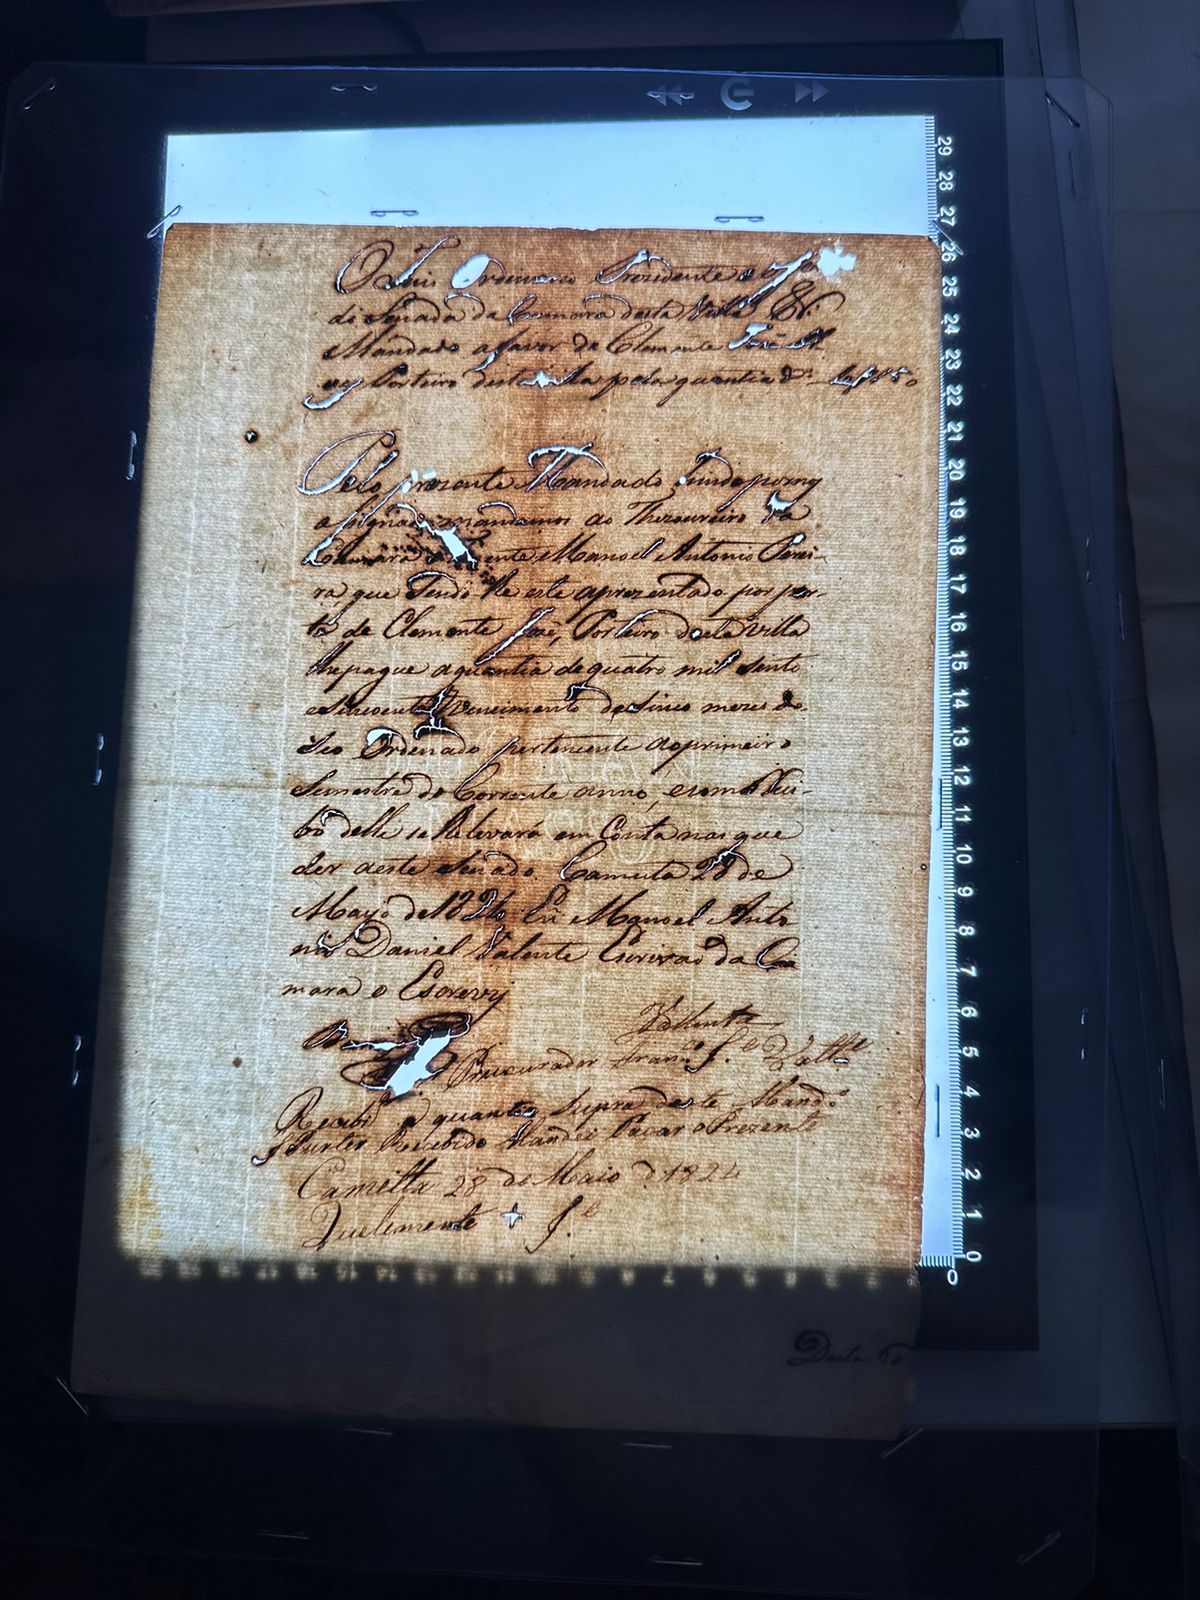 O Juis Ordenario Prezidente e
do Senado da Camara desta Villa &ª
Mandado afavor de Clemente José
Porteiro desta Va pela quantia de 4$150
Pelo prezente Mandado hindo por nos
asignado mandamos ao Thezoureiro da
Camara Manoel Antonio Perei-
ra, que Sendo lhe este aprezentado por par-
te de Clemente José, Porteiro desta Villa
lhe pague a quantia de quatro mil Sento
e Sincoenta Vencimento de Sinco mezes do
Seo Ordenado pertencente ao primeiro
Semestre do Corrente anno, e com Reci-
bo delle se lhe levará em Conta nas que
der aeste Senado. Cameta 28 de
Mayo de 1824 Eu Manoel Anto
nio Daniel Valente Escrivão da Ca
mara o Escrevy
Procurador Fran.co J.e
Recebi a quantia Supra deste Mand.o
Recebido Mandei Pacar o Prezente
Cametta 28 de Maio d 1824
+ J.e
Desta
29 28 27 26 25 24 23 22 21 20 19 18 17 16 15 14 13 12 11 10 9 8 7 6 5 4 3 2 1 0
0